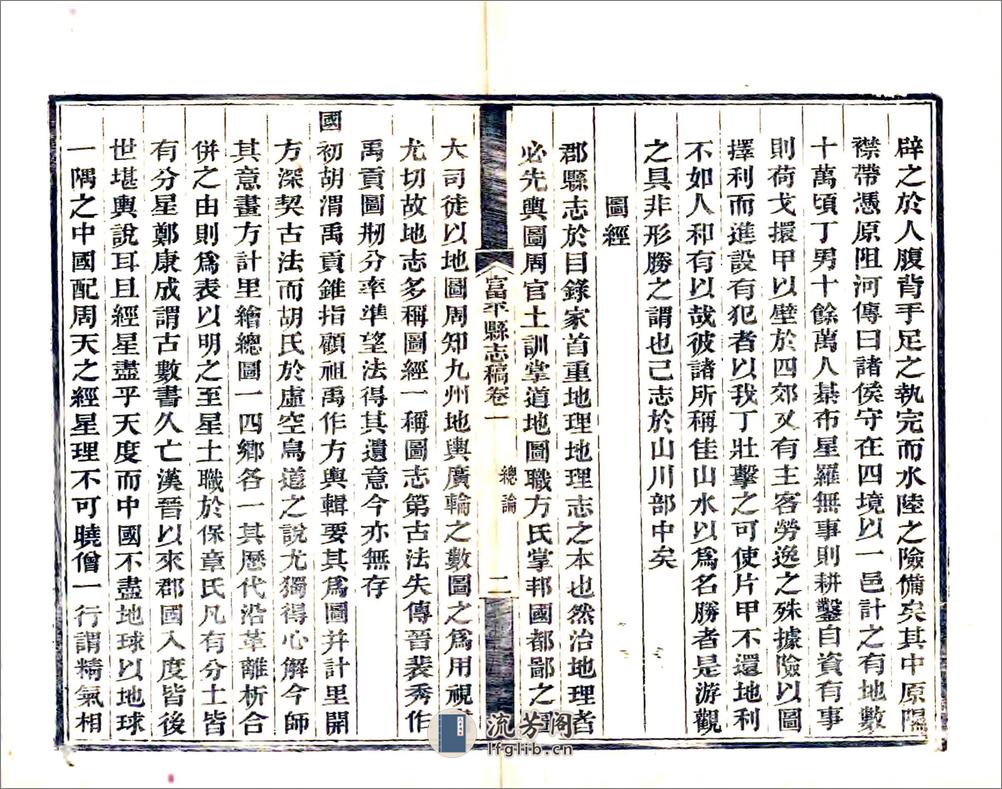 辟之於人腹背手足之執完而水陸之險備矣其中原隰
襟帶憑原阻河傳曰諸侯守在四境以一邑計之有地數
十萬頃丁男十餘萬人棊布星羅無事則耕鑿自資有事
則荷戈擐甲以壁於四郊又有主客勞逸之殊據險以圖
擇利而進設有犯者以我丁壯擊之可使片甲不還地利
不如人和有以哉彼諸所稱佳山水以爲名勝者是游觀
之具非形勝之謂也已志於山川部中矣
圖經
郡縣志於目錄家首重地理地理志之本也然治地理者
必先輿圖周官土訓掌道地圖職方氏掌邦國都鄙之圖
富平縣志稿卷一
總論
二
大司徒以地圖周知九州地輿廣輪之數圖之爲用視
尤切故地志多稱圖經一稱圖志第古法失傳晉裴秀作
禹貢圖刱分率準望法得其遺意今亦無存
國初胡渭禹貢錐指顧祖禹作方輿輯要其爲圖幷計里開
方深契古法而胡氏於虛空鳥道之說尤獨得心解今師
其意畫方計里繪總圖一四鄉各一其歷代沿革離析合
併之由則爲表以明之至星土職於保章氏凡有分土皆
有分星鄭康成謂古數書久亡漢晉以來郡國入度皆後
世堪輿說耳且經星盡乎天度而中國不盡地球以地球
一隅之中國配周天之經星理不可曉僧一行謂精氣相
流芳閣
lfglib.cn